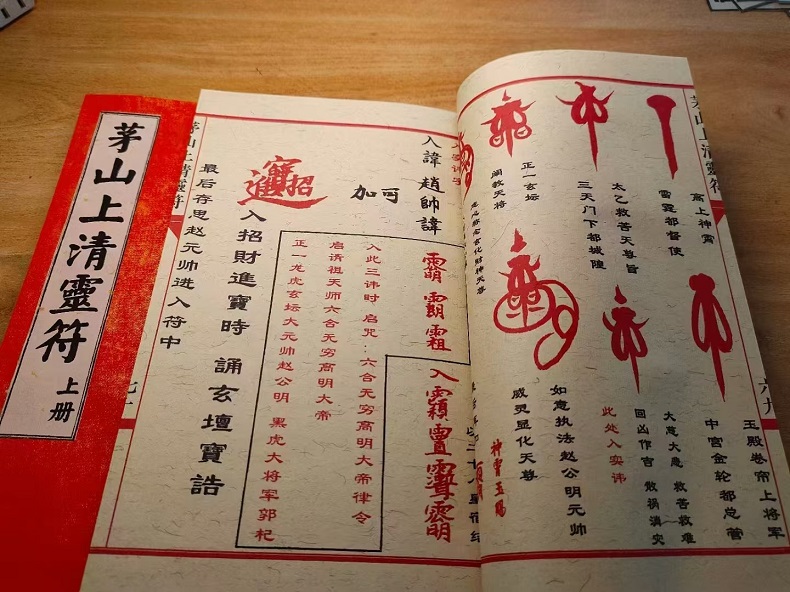 茅山上清靈符
上册
茅山上清靈符
高上神霄
雷霆都督使
太乙救苦天尊旨
三天门下都城隍
正一玄坛
阐教天将
玉殿卷帘上将军
中宫金轮都总管
大慈大悲 救苦救难
回凶作吉 散祸消灾
此处入实讳
如意执法赵公明元帅
威灵显化天尊
入諱趙帥諱
可加
入此三讳时 启咒:六合无穷高明大帝律令
启请祖天师六合无穷高明大帝
正一龙虎玄坛大元帅赵公明 黑虎大将军郭杞
入招財進寶時 誦玄壇寶誥
最后存思赵元帅进入符中
茅山上清靈符